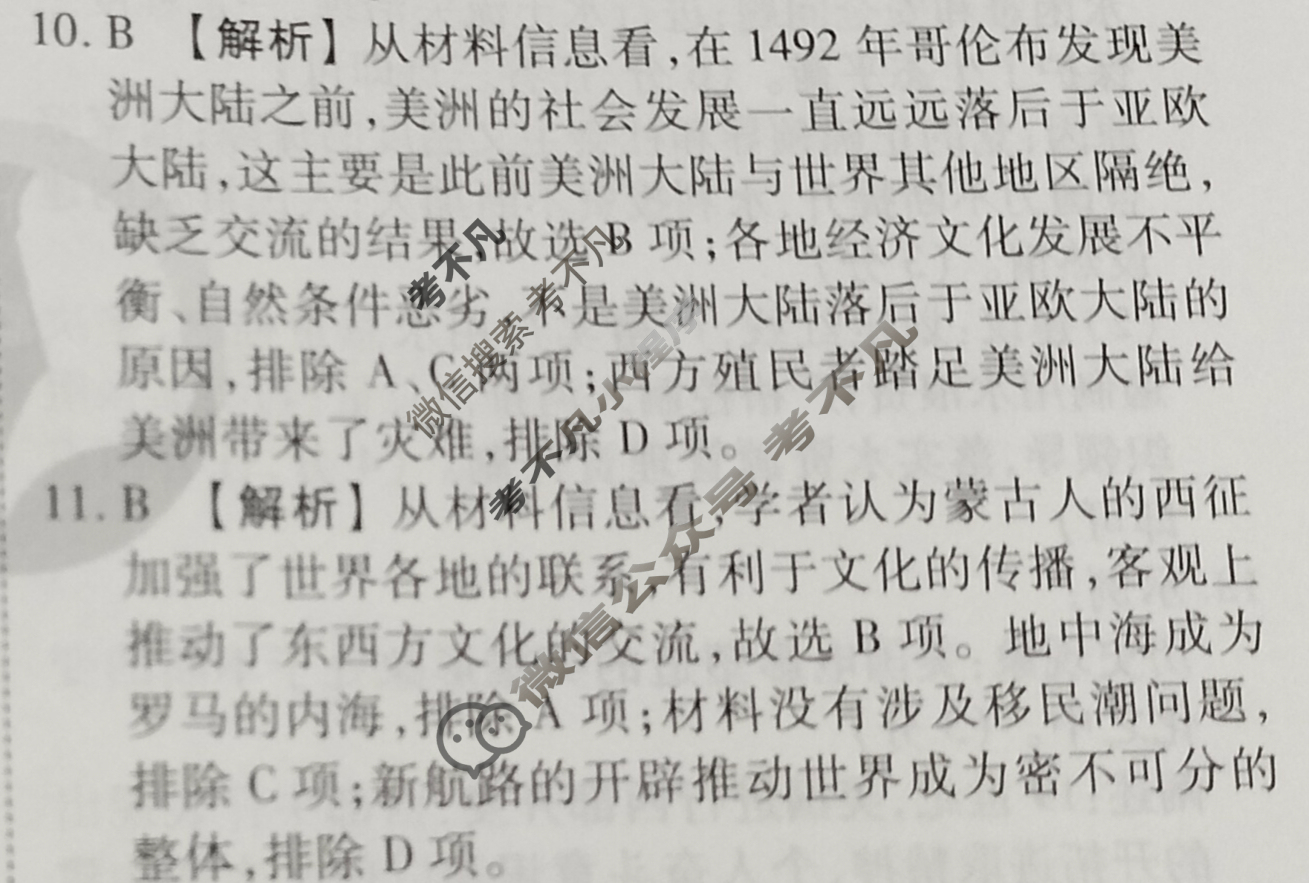 10. B 【解析】从材料信息看,在 1492 年哥伦布发现美
洲大陆之前,美洲的社会发展一直远远落后于亚欧
大陆,这主要是此前美洲大陆与世界其他地区隔绝,
缺乏交流的结果,故选 B 项;各地经济文化发展不平
衡、自然条件恶劣,不是美洲大陆落后于亚欧大陆的
原因,排除 A、C 两项;西方殖民者踏足美洲大陆给
美洲带来了灾难,排除 D 项。
11. B 【解析】从材料信息看,学者认为蒙古人的西征
加强了世界各地的联系,有利于文化的传播,客观上
推动了东西方文化的交流,故选 B 项。地中海成为
罗马的内海,排除 A 项;材料没有涉及移民潮问题,
排除 C 项;新航路的开辟推动世界成为密不可分的
整体,排除 D 项。
考不凡
微信搜索 考不凡
考不凡小程序
微信公众号 考不凡